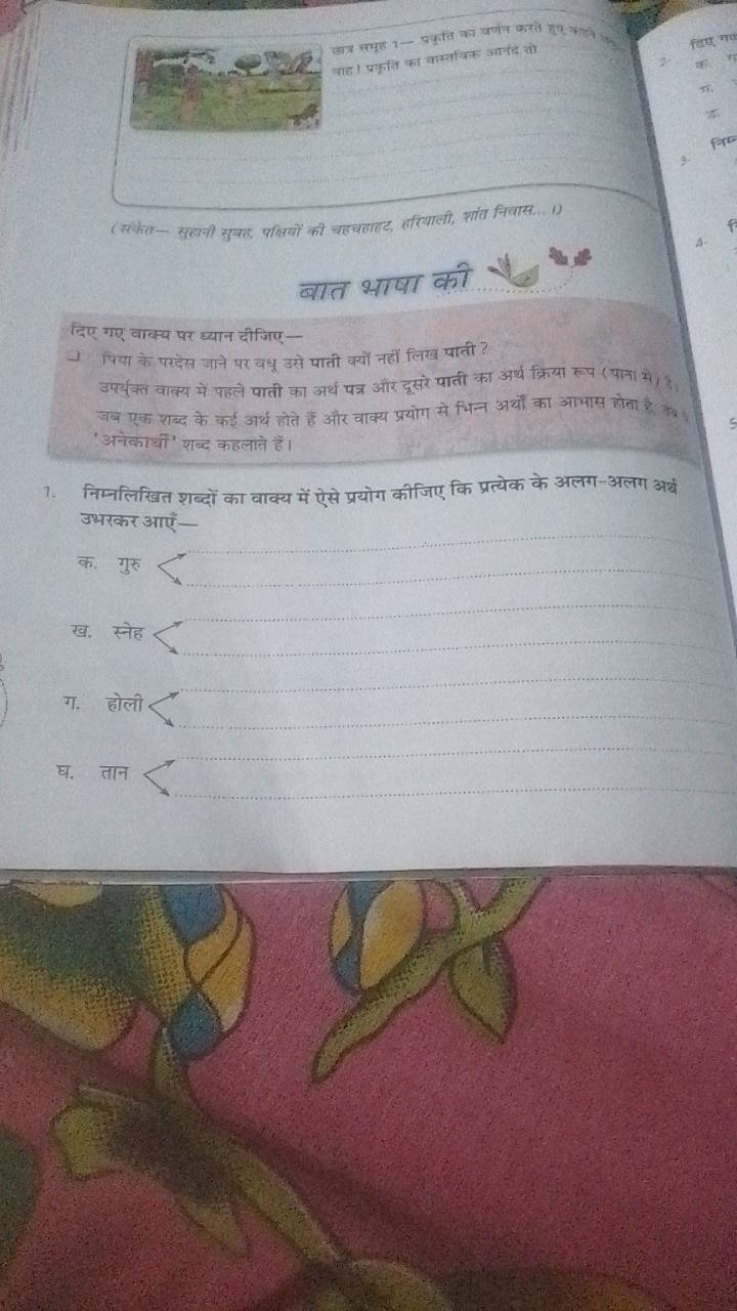 छात्र समूह 1— प्रकृति का वर्णन करते हुए
वाह! प्रकृति का वास्तविक आनंद तो
(संकेत— सुहानी सुबह, पक्षियों की चहचहाहट, हरियाली, शांत निवास... ।)
बात भाषा की
दिए गए वाक्य पर ध्यान दीजिए—
पिया के परदेस जाने पर वधू उसे पाती क्यों नहीं लिख पाती?
उपर्युक्त वाक्य में पहले पाती का अर्थ पत्र और दूसरे पाती का अर्थ क्रिया रूप (पाना में) है।
जब एक शब्द के कई अर्थ होते हैं और वाक्य प्रयोग से भिन्न अर्थों का आभास होता है,
'अनेकार्थी' शब्द कहलाते हैं।
1. निम्नलिखित शब्दों का वाक्य में ऐसे प्रयोग कीजिए कि प्रत्येक के अलग-अलग अर्थ
उभरकर आएँ—
क. गुरु
ख. स्नेह
ग. होली
घ. तान
2. दिए
क.
ग.
3.
4.